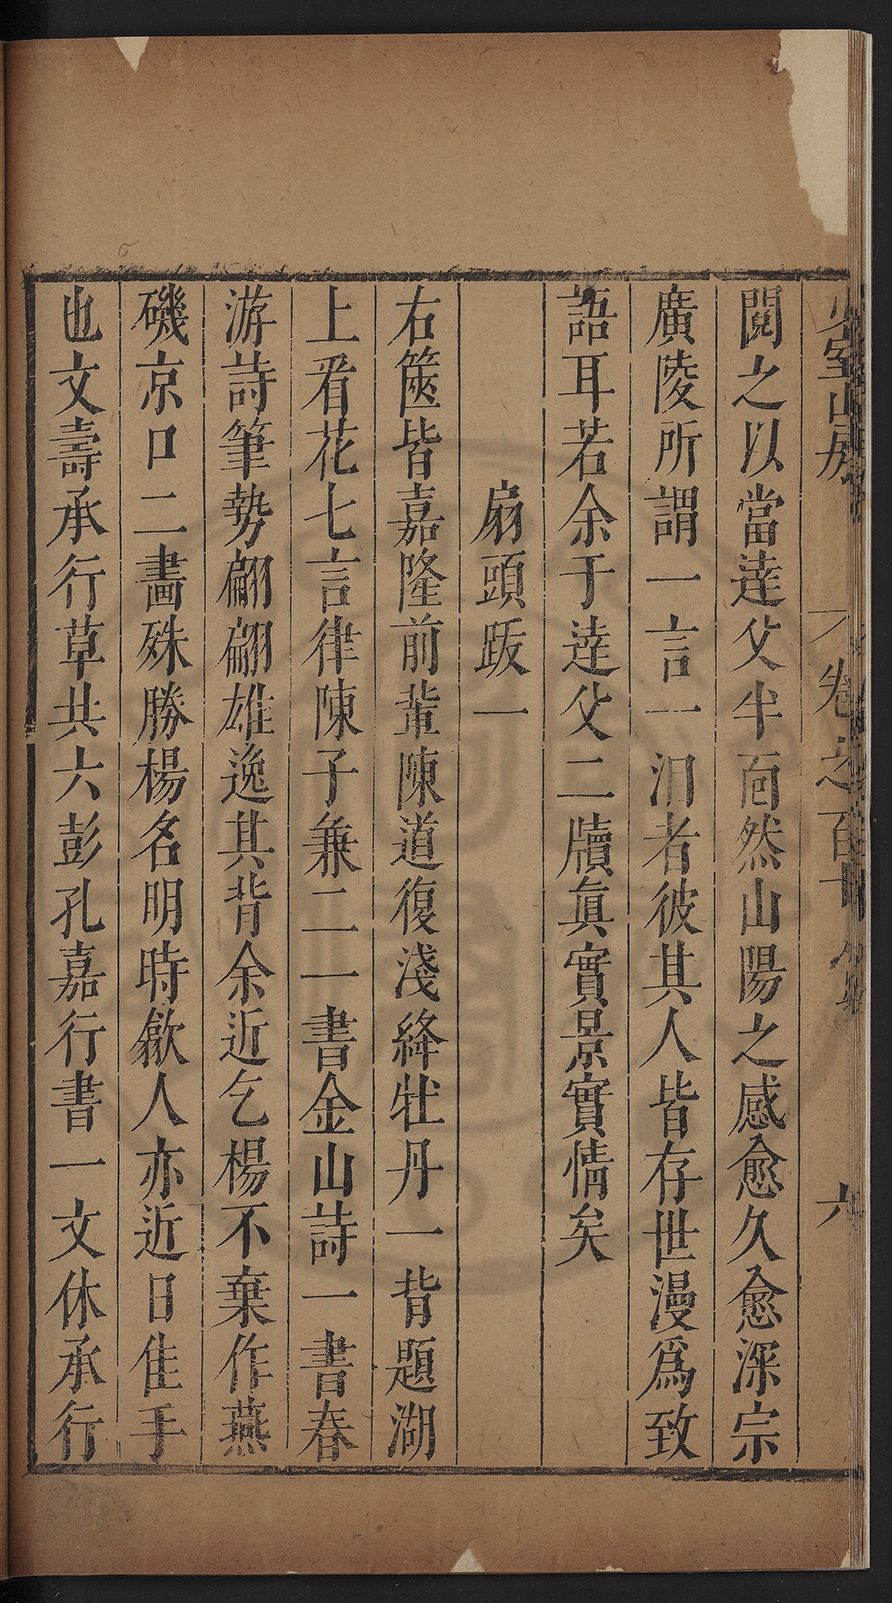 少室山房 卷之百十 六
閱之以當達父半面然山陽之感愈久愈深宗
廣陵所謂一言一汨者彼其人皆存世漫爲致
語耳若余于達父二牘眞實景實情矣
扇頭跋一
右箧皆嘉隆前輩陳道復淺絳牡丹一背題湖
上看花七言律陳子兼二一書金山詩一書春
游詩筆勢翩翩雄逸其背余近乞楊不棄作燕
磯京口二畵殊勝楊名明時歙人亦近日佳手
也文壽承行草共六彭孔嘉行書一文休承行